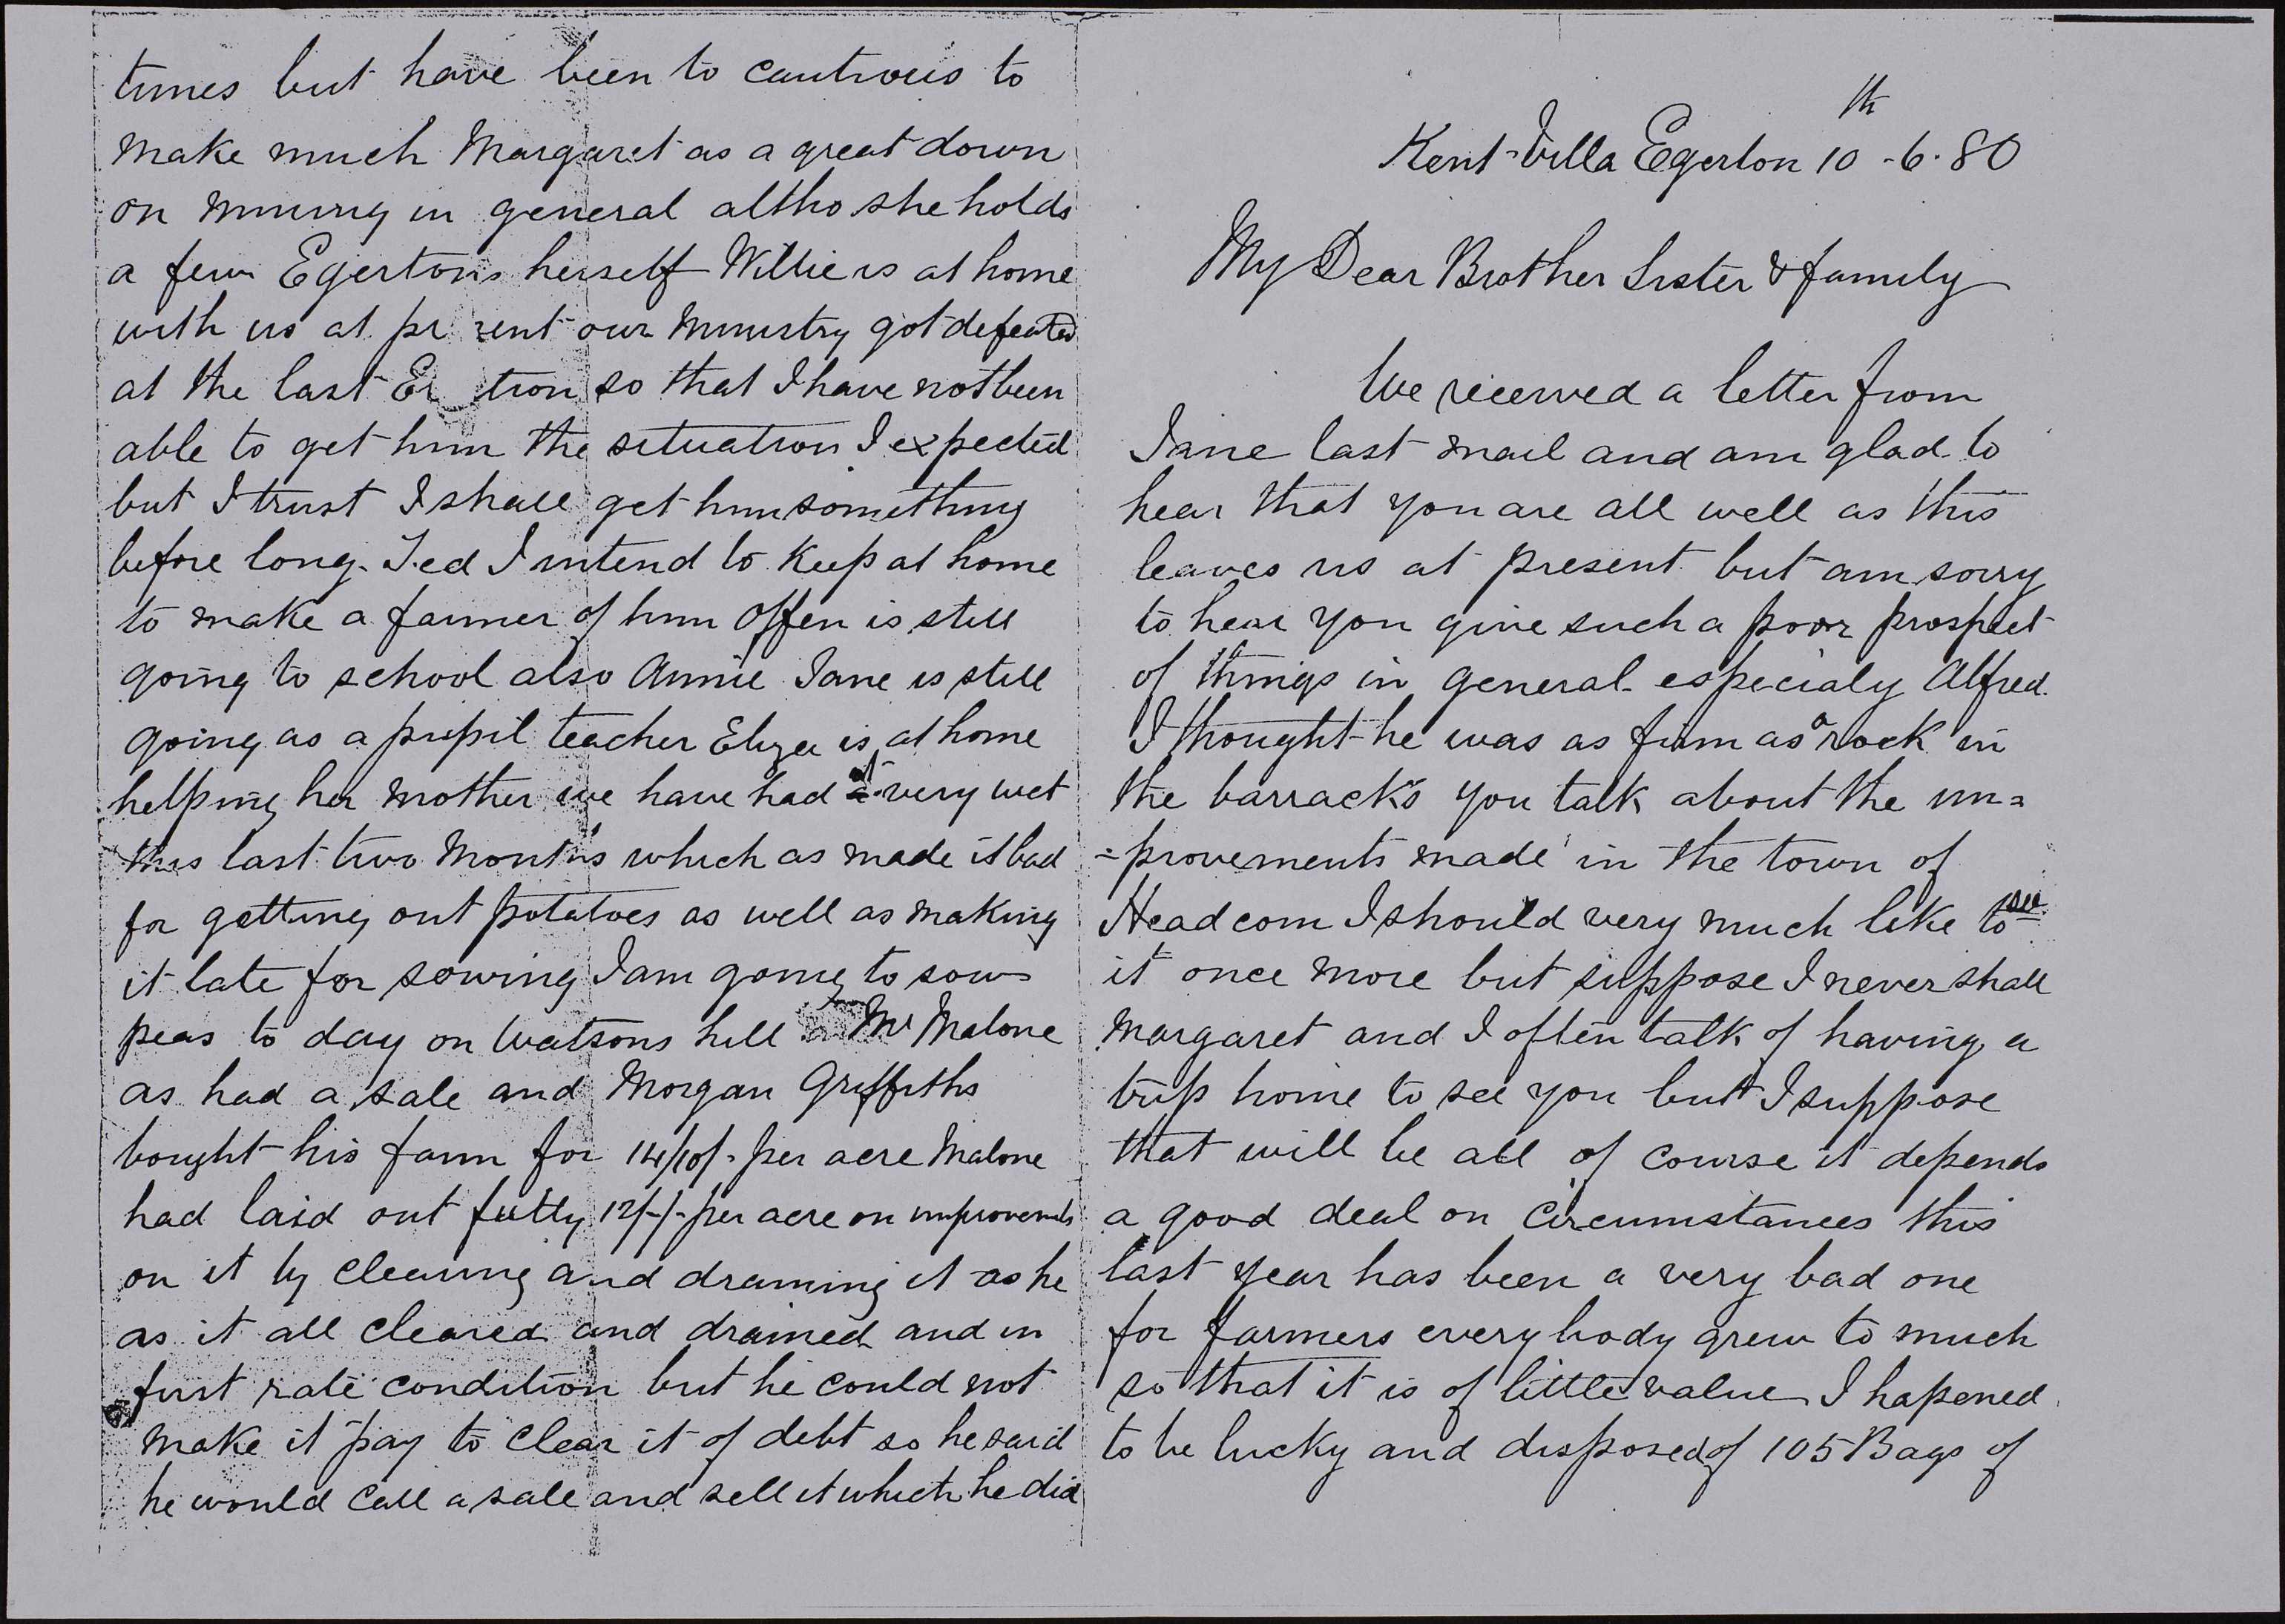 times but have been to cautious to
make much Margaret as a great down
on mining in general altho she holds
a few Egertons herself Willie is at home
with us at pr sent our Ministry got defeated
at the last El tion so that I have not been
able to get him the situation I expected
but I trust I shall get him something
before long. Ted I intend to keep at home
to make a farmer of him Offen is still
going to school also Annie Jane is still
going as a pupil teacher Eliza is at home
helping her mother we have had it very wet
this last two Months which as made it bad
for getting out potatoes as well as making
it late for sowing I am going to sow
peas to day on Watsons hill Mr Malone
as had a sale and Morgan Griffiths
bought his farm for 14/10/- per acre Malone
had laid out fully 12/-/- per acre on improvements
on it by clearing and draining it as he
as it all cleared and drained and in
first rate condition but he could not
make it pay to clear it of debt so he said
he would call a sale and sell it which he did
Kent Villa Egerton 10th -6-80
My Dear Brother Sister & family
We received a letter from
Jane last mail and am glad to
hear that you are all well as this
leaves us at present but am sorry
to hear you give such a poor prospect
of things in general especialy Alfred.
I thought he was as firm as a rock in
the barracks you talk about the im=
=provements made in the town of
Headcorn I should very much like to see
it once more but suppose I never shall
Margaret and I often talk of having a
trip home to see you but I suppose
that will be all of course it depends
a good deal on circumstances this
last year has been a very bad one
for farmers every body grew to much
so that it is of little value I hapened
to be lucky and disposed of 105 Bags of